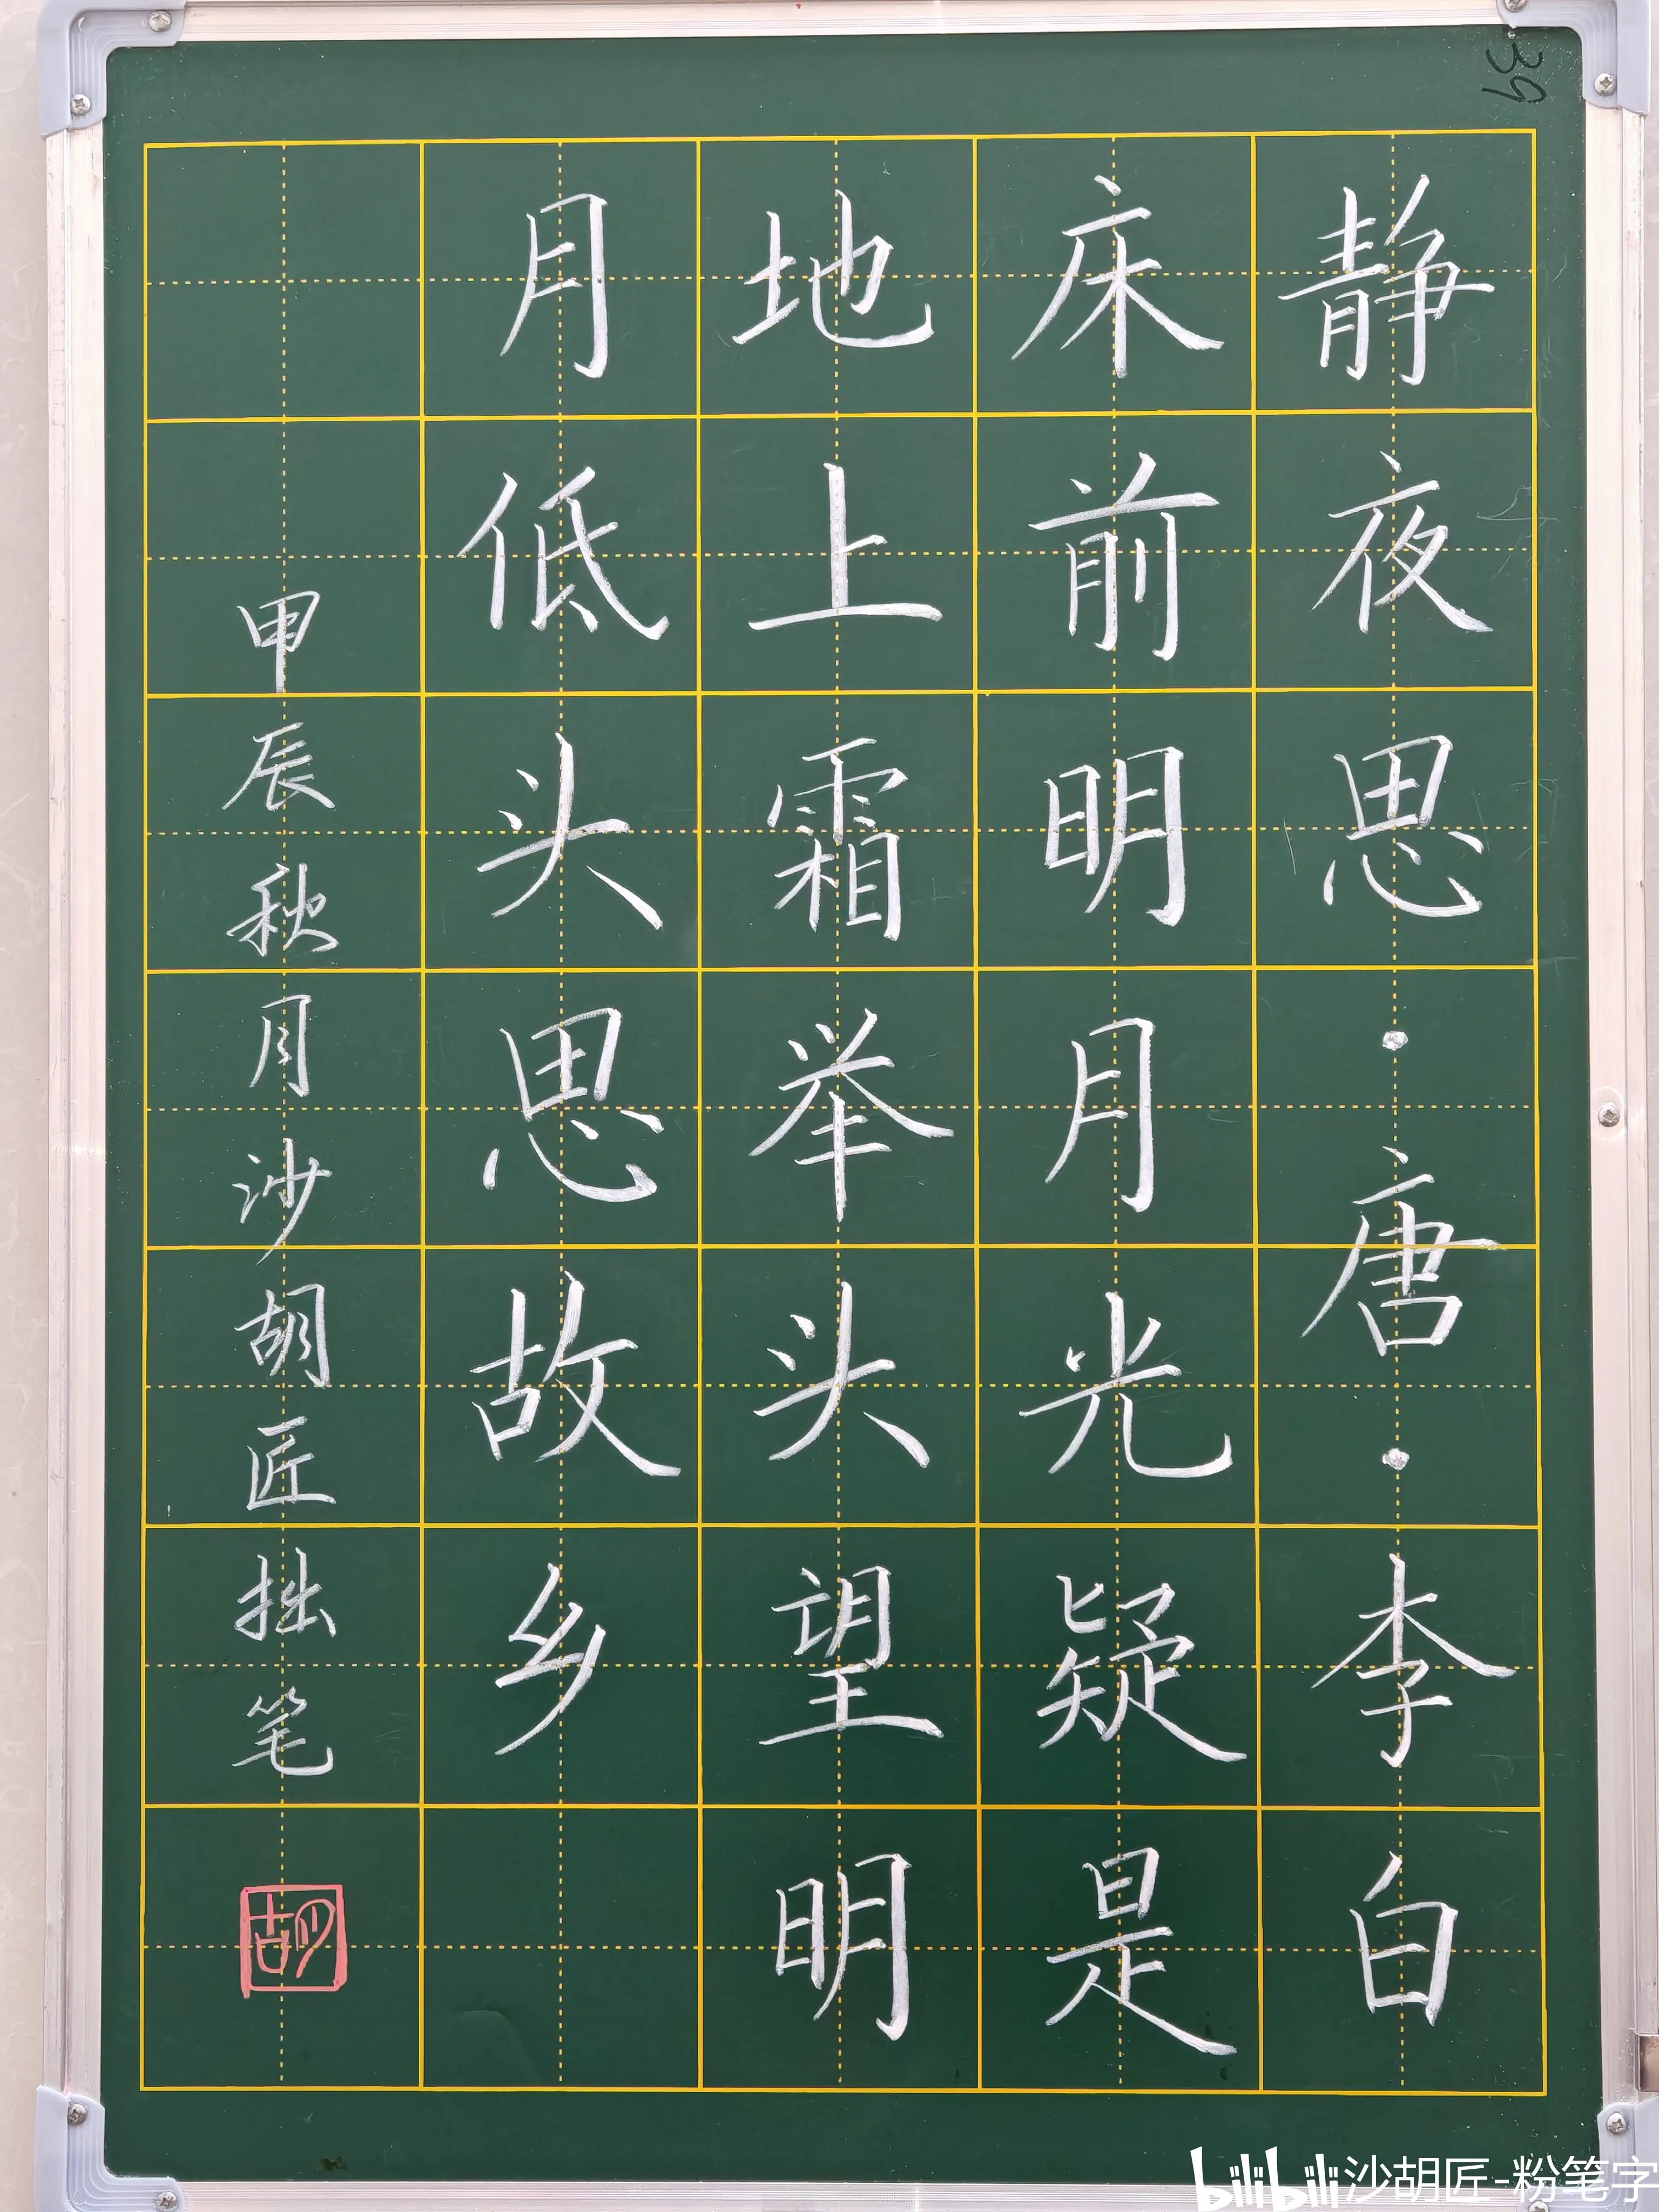 静夜思·唐·李白
床前明月光疑是
地上霜举头望明
月低头思故乡
甲辰秋月沙胡匠拙笔
胡
39
bilibili 沙胡匠-粉笔字